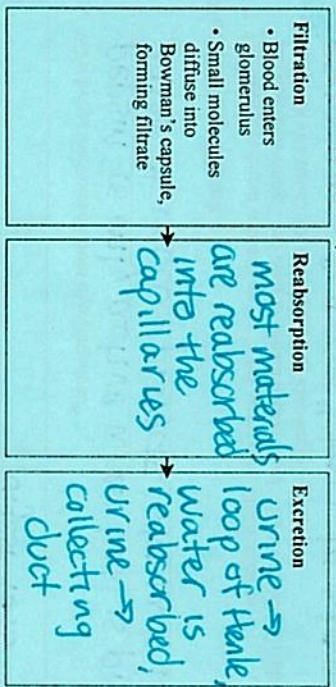 Filtration
• Blood enters
glomerulus
• Small molecules
diffuse into
Bowman's capsule,
forming filtrate
Reabsorption
most materials
are reabsorbed
into the
capillaries
Excretion
urine →
loop of Henle,
water is
reabsorbed,
urine →
collecting
duct